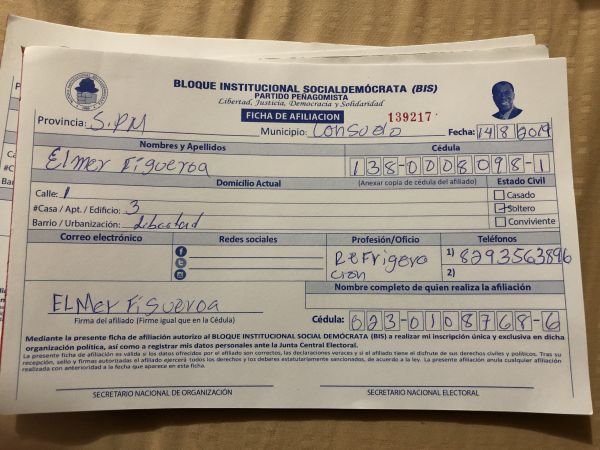 BLOQUE INSTITUCIONAL SOCIALDEMÓCRATA (BIS)
PARTIDO PEÑAGOMISTA
Libertad, Justicia, Democracia y Solidaridad
FICHA DE AFILIACION 139217
Provincia: S.P.M Municipio: Consuelo Fecha: 14/8/2019
Nombres y Apellidos Cédula
Elmer Figueroa 138-0008098-1
Domicilio Actual (Anexar copia de cédula del afiliado) Estado Civil
Calle: 1 Casado
#Casa / Apt. / Edificio: 3 Soltero
Barrio / Urbanización: Libertad Conviviente
Correo electrónico Redes sociales Profesión/Oficio Teléfonos
Refrigera 1) 8293563896
cion 2)
Nombre completo de quien realiza la afiliación
ELMer Figueroa
Firma del afiliado (Firme igual que en la Cédula) Cédula: 023-0108768-6
Mediante la presente ficha de afiliación autorizo al BLOQUE INSTITUCIONAL SOCIAL DEMÓCRATA (BIS) a realizar mi inscripción única y exclusiva en dicha
organización política, así como a registrar mis datos personales ante la Junta Central Electoral.
La presente ficha de afiliación es válida si los datos ofrecidos por el afiliado son correctos, las declaraciones veraces y si el afiliado tiene el disfrute de sus derechos civiles y políticos. Tras su
recepción, sello y firmas autorizadas el afiliado ejercerá todos los derechos y los deberes estatutariamente sancionados, de acuerdo a la ley. La presente afiliación anula cualquier afiliación
realizada con anterioridad a la fecha que aparece en esta ficha.
SECRETARIO NACIONAL DE ORGANIZACIÓN SECRETARIO NACIONAL ELECTORAL